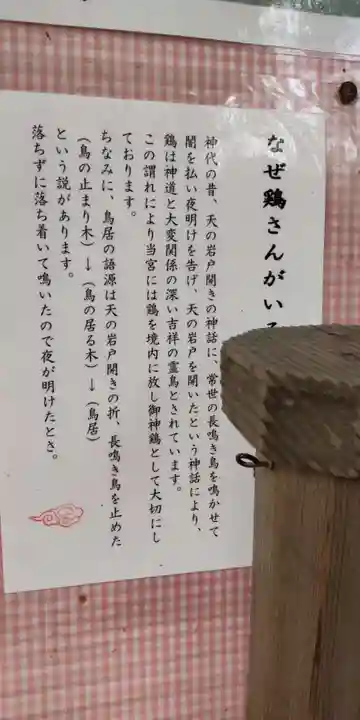 なぜ鶏さんがいる
神代の昔、天の岩戸開きの神話に、常世の長鳴き鳥を鳴かせて
闇を払い夜明けを告げ、天の岩戸を開いたという神話により、
鶏は神道と大変関係の深い吉祥の霊鳥とされています。
この謂れにより当宮には鶏を境内に放し御神鶏として大切にし
ております。
ちなみに、鳥居の語源は天の岩戸開きの折、長鳴き鳥を止めた
（鳥の止まり木）→（鳥の居る木）→（鳥居）
という説があります。
落ちずに落ち着いて鳴いたので夜が明けたとさ。